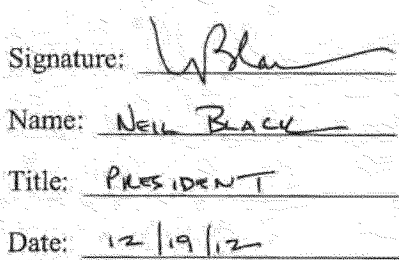 Signature:
Name: NEIL BLACK
Title: PRESIDENT
Date: 12/19/12